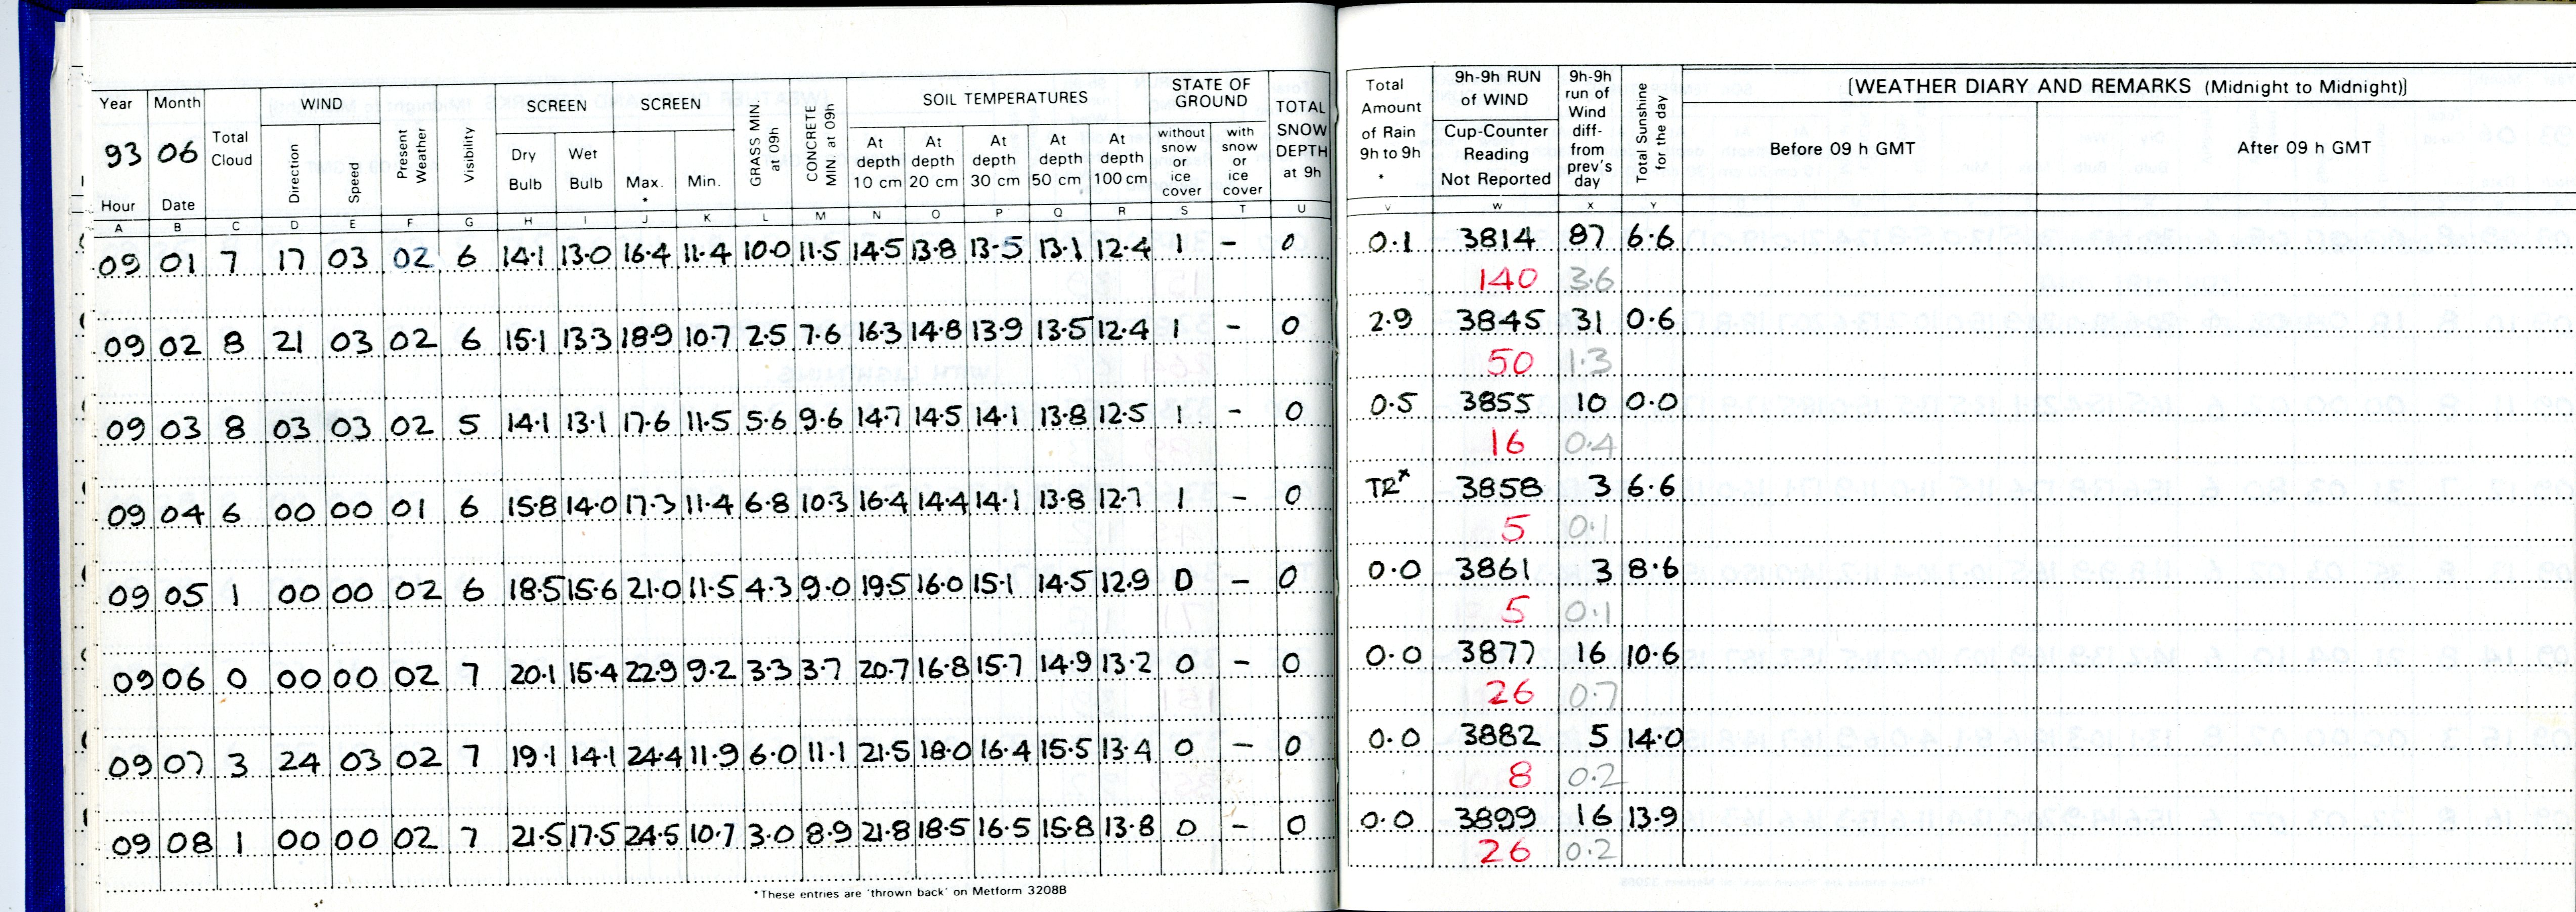 Year Month Total Cloud WIND Present Weather Visibility SCREEN SCREEN GRASS MIN. at 09h CONCRETE MIN. at 09h SOIL TEMPERATURES STATE OF GROUND TOTAL SNOW DEPTH at 9h Total Amount of Rain 9h to 9h * 9h-9h RUN of WIND 9h-9h run of Wind diff- from prev's day Total Sunshine for the day [WEATHER DIARY AND REMARKS (Midnight to Midnight)]
93 06 Direction Speed Dry Bulb Wet Bulb Max. * Min. At depth 10 cm At depth 20 cm At depth 30 cm At depth 50 cm At depth 100 cm without snow or ice cover with snow or ice cover Cup-Counter Reading Not Reported Before 09 h GMT After 09 h GMT
Hour Date
A B C D E F G H I J K L M N O P Q R S T U V W X Y
09 01 7 17 03 02 6 14.1 13.0 16.4 11.4 10.0 11.5 14.5 13.8 13.5 13.1 12.4 1 - 0 0.1 3814 87 6.6
140 3.6
09 02 8 21 03 02 6 15.1 13.3 18.9 10.7 2.5 7.6 16.3 14.8 13.9 13.5 12.4 1 - 0 2.9 3845 31 0.6
50 1.3
09 03 8 03 03 02 5 14.1 13.1 17.6 11.5 5.6 9.6 14.7 14.5 14.1 13.8 12.5 1 - 0 0.5 3855 10 0.0
16 0.4
09 04 6 00 00 01 6 15.8 14.0 17.3 11.4 6.8 10.3 16.4 14.4 14.1 13.8 12.7 1 - 0 TR* 3858 3 6.6
5 0.1
09 05 1 00 00 02 6 18.5 15.6 21.0 11.5 4.3 9.0 19.5 16.0 15.1 14.5 12.9 0 - 0 0.0 3861 3 8.6
5 0.1
09 06 0 00 00 02 7 20.1 15.4 22.9 9.2 3.3 3.7 20.7 16.8 15.7 14.9 13.2 0 - 0 0.0 3877 16 10.6
26 0.7
09 07 3 24 03 02 7 19.1 14.1 24.4 11.9 6.0 11.1 21.5 18.0 16.4 15.5 13.4 0 - 0 0.0 3882 5 14.0
8 0.2
09 08 1 00 00 02 7 21.5 17.5 24.5 10.7 3.0 8.9 21.8 18.5 16.5 15.8 13.8 0 - 0 0.0 3899 16 13.9
26 0.2
*These entries are 'thrown back' on Metform 3208B